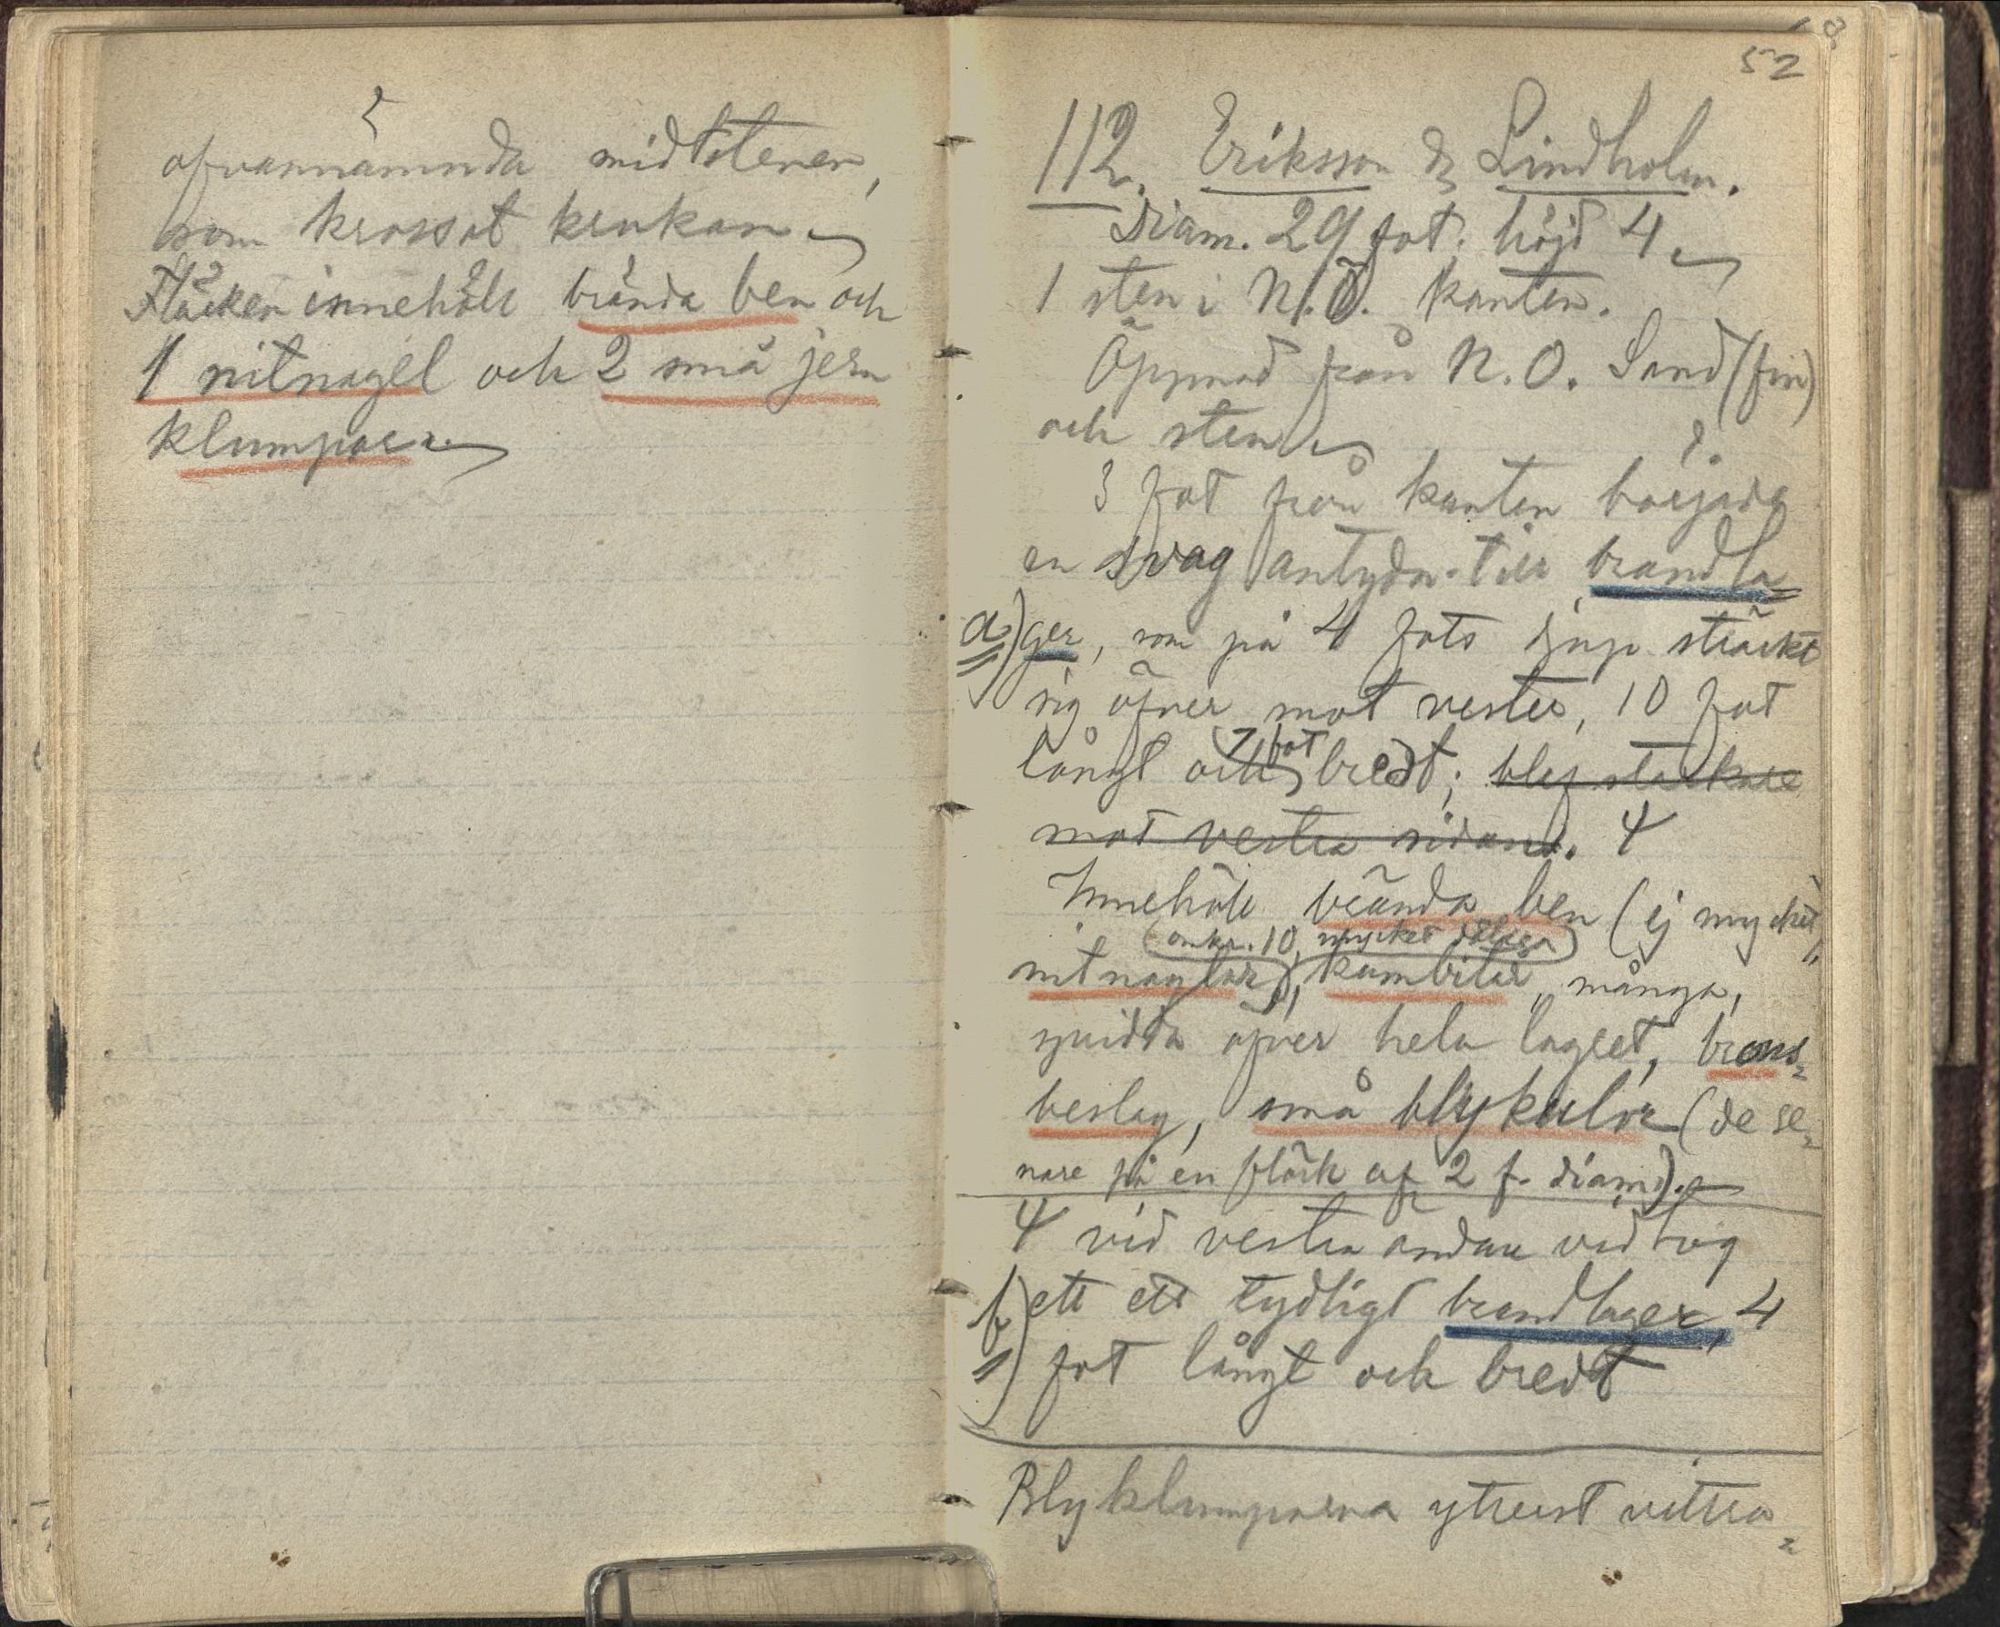 ofvannämnda midtstenen,
som krossat krukan.
Fläcken innehöll brända ben och
1 nitnagel och 2 små jern
klumpar.
52
112. Eriksson & Lindholm.
Diam. 29 fot. höjd 4.
1 sten i N.Ö. kanten.
Öppnad från N.O. Sand (fin)
och sten.
3 fot från kanten började
en svag antydn. till brandla-
a) ger, som på 4 fots djup sträckt
sig öfver mot vester, 10 fot
7 fot
långt och bredt; blef starkare
mot vestra sidan. 4
Innehöll brända ben (ej mycket),
omkr. 10, mycket dåliga
nitnaglar, kambitar, många,
spridda öfver hela lagret, brons-
beslag, små blykulor (de se-
nare på en fläck af 2 f. diam.).
4 vid vestra ändan vidtog
b) ett ett tydligt brandlager, 4
fot långt och bredt
Blyklumparna ytterst vittra-